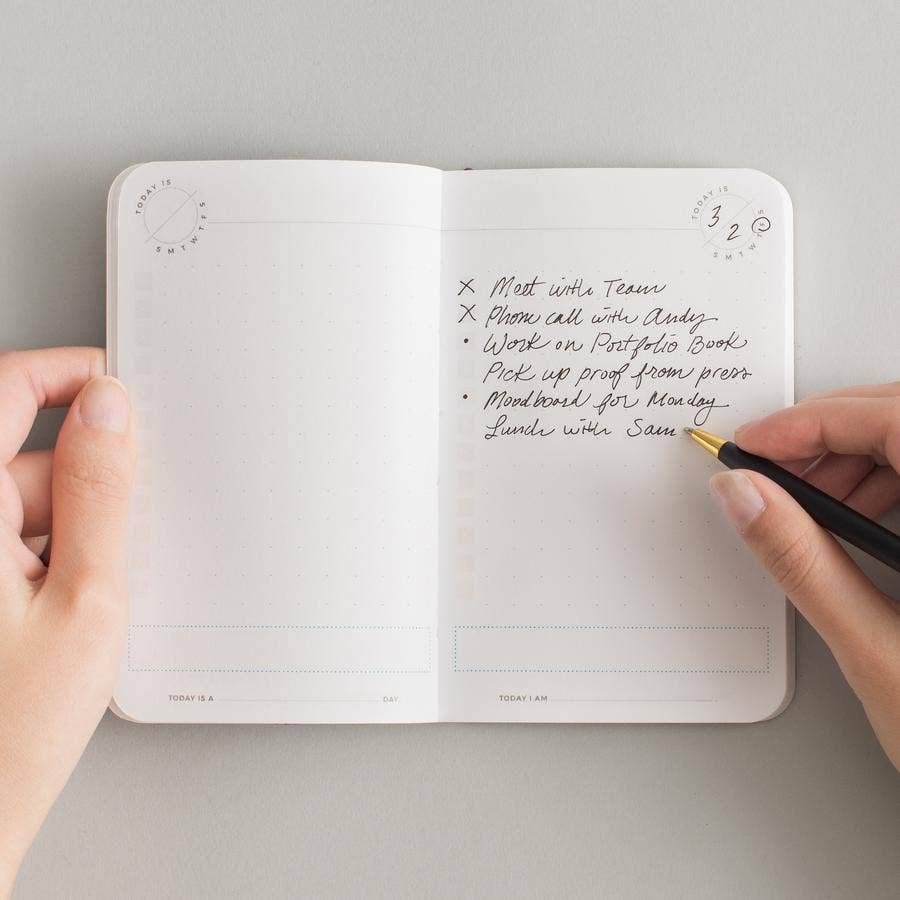 TODAY IS
S M T W T F S
TODAY IS A DAY.
TODAY IS
3 2
S M T W T F S
X Meet with Team
X Phone call with Andy
• Work on Portfolio Book
Pick up proof from press
• Moodboard for Monday
Lunch with Sam
TODAY I AM